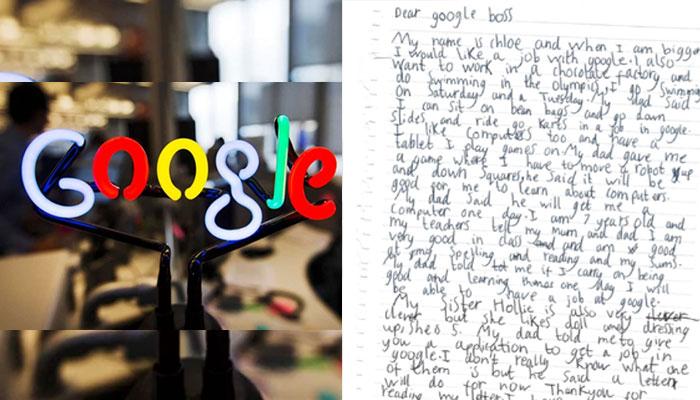 Google
Dear google boss
My name is chloe and when I am bigger
I would like a job with google. I also
want to work in a chocolate factory and
do swimming in the olympics. I go swimming
on Saturday and a Tuesday. My dad said
I can sit on bean bags and go down
slides and ride go karts in a job in google.
I like computers too and have a
tablet I play games on. My dad gave me
a game where I have to move a robot up
and down squares, he said it will be
good for me to learn about computers.
My dad said he will get me a
computer one day. I am 7 years old and
my teachers tell my mum and dad I am
very good in class and am good
at my spelling and reading and my sums.
my dad told me if I carry on being
good and learning then one day I will
be able to have a job at google.
My sister Hollie is also very clever
clever but she likes doll and dressing
up. she is 5. My dad told me to give
you a application to get a job in
google. I don't really know what one
of them is but he said a letter
will do for now. Thankyou for
reading my letter. I